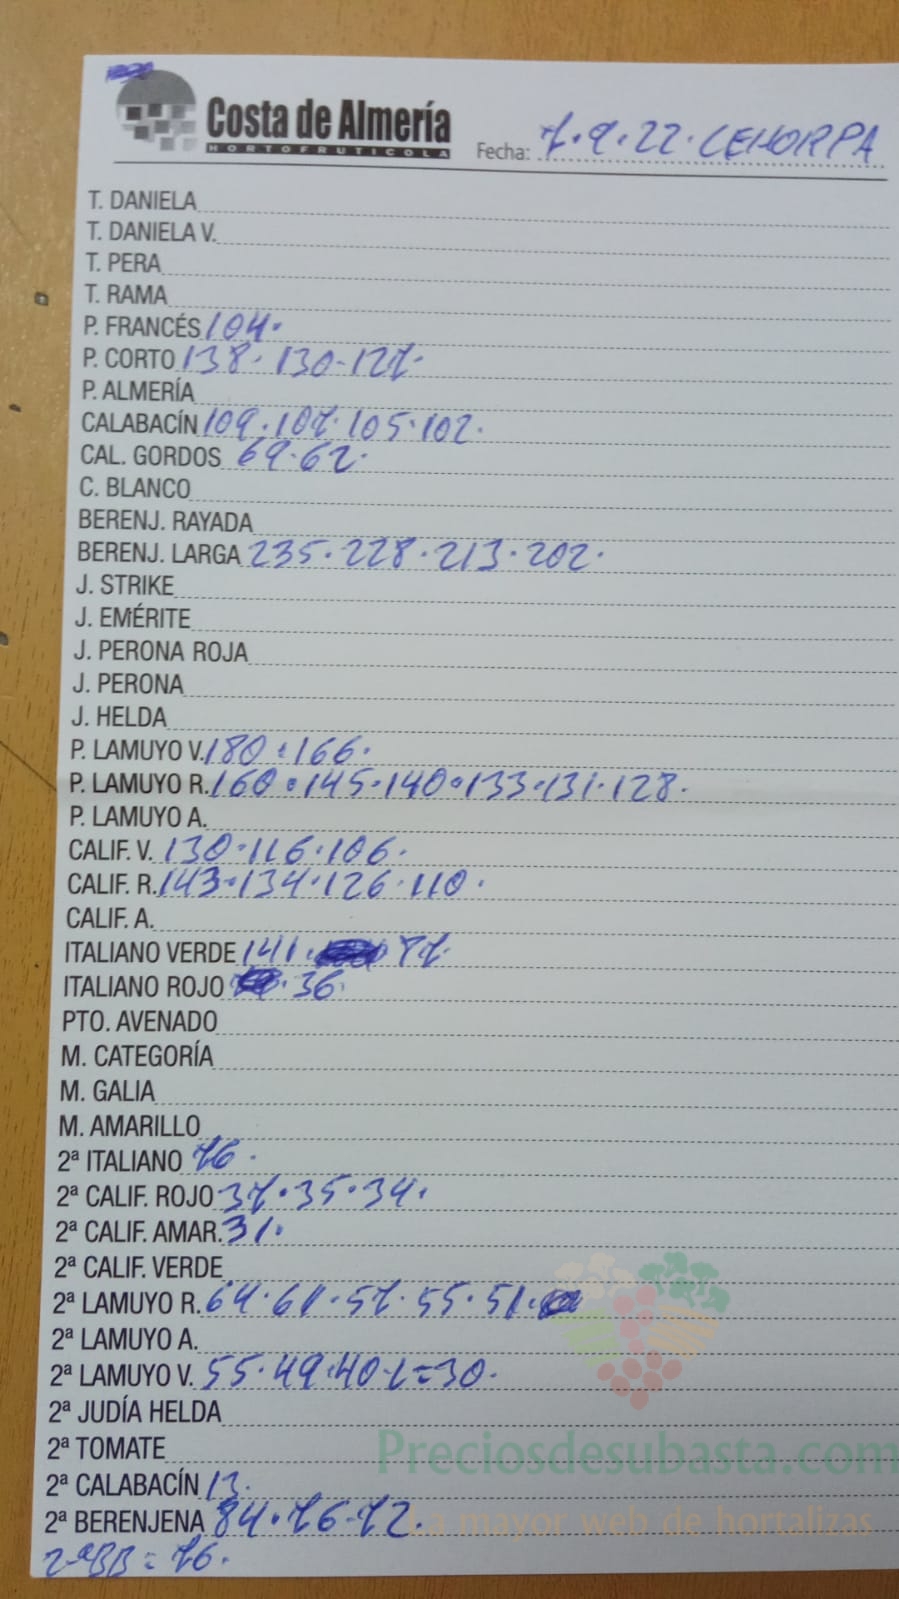 Costa de Almería
HORTOFRUTICOLA
Fecha: 7.9.22. CEHORPA
T. DANIELA
T. DANIELA V.
T. PERA
T. RAMA
P. FRANCÉS 104.
P. CORTO 138. 130-127.
P. ALMERÍA
CALABACÍN 109.107.105.102.
CAL. GORDOS 69.62.
C. BLANCO
BERENJ. RAYADA
BERENJ. LARGA 235.228.213.202.
J. STRIKE
J. EMÉRITE
J. PERONA ROJA
J. PERONA
J. HELDA
P. LAMUYO V. 180.166.
P. LAMUYO R. 160.145.140.133.131.128.
P. LAMUYO A.
CALIF. V. 130.116.106.
CALIF. R. 143.134.126.110.
CALIF. A.
ITALIANO VERDE 141. 87.
ITALIANO ROJO . 36.
PTO. AVENADO
M. CATEGORÍA
M. GALIA
M. AMARILLO
2ª ITALIANO 76.
2ª CALIF. ROJO 37.35.34.
2ª CALIF. AMAR. 31.
2ª CALIF. VERDE
2ª LAMUYO R. 64.61.57.55.51.
2ª LAMUYO A.
2ª LAMUYO V. 55.49.40.L=30.
2ª JUDÍA HELDA
2ª TOMATE
Preciosdesubasta.com
2ª CALABACÍN 13.
2ª BERENJENA 84.76-72.
La mayor web de hortalizas
2ªBB=76.